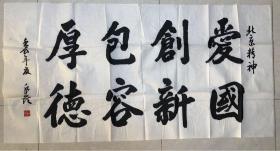 北京精神
愛國
創新
包容
厚德
壬辰年夏